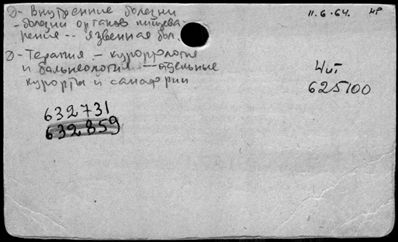 2- Внутренние болезни
- болезни органов пищева-
рения -- язвенная бол.
2- Терапия - курортология
и бальнеология - отдельные
курорты и санатории
11.6.64. нр
625100
632731
632859